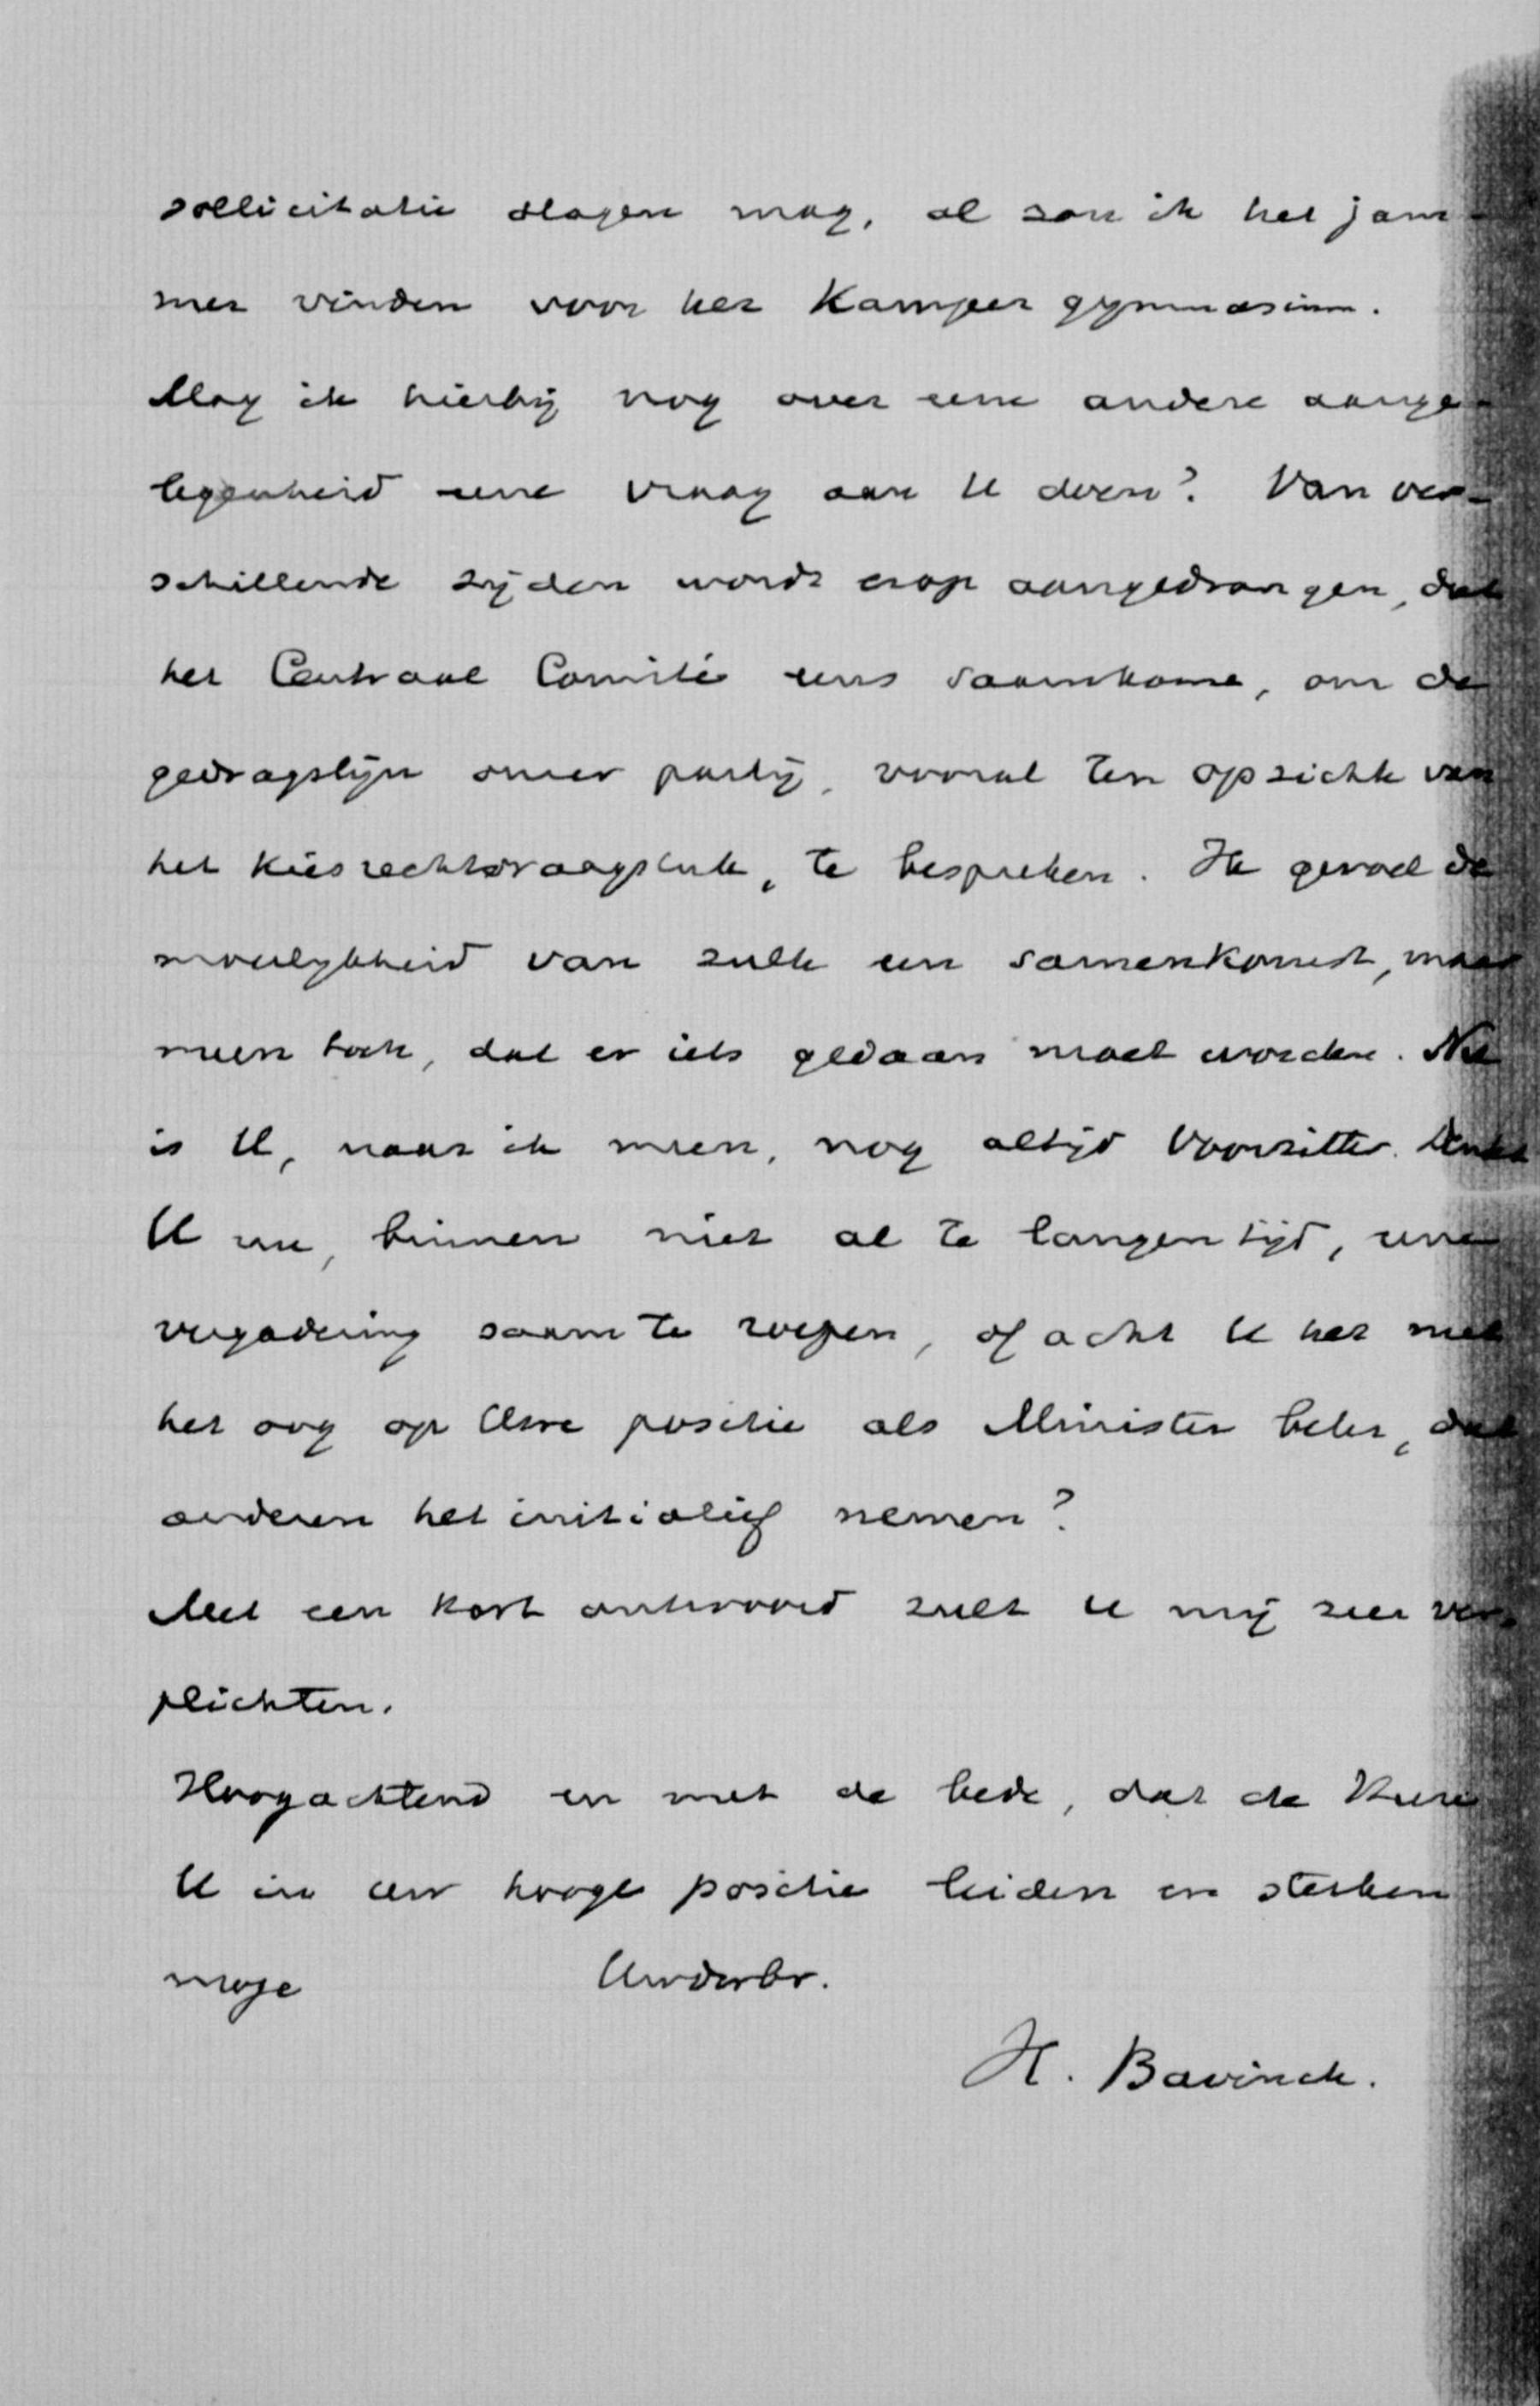 sollicitatie slagen mag, al zou ik het jam-
mer vinden voor het Kamper gymnasium.
Mag ik hierbij nog over eene andere aange-
legenheid eene vraag aan U doen? Van ver-
schillende zijden wordt erop aangedrongen, dat
het Centraal Comité eens saamkome, om de
gedragslijn onzer partij, vooral ten opzichte van
het kiesrechtvraagstuk, te bespreken. Ik gevoel de
moeilijkheid van zulk een samenkomst, maar
meen toch, dat er iets gedaan moet worden. Nu
is U, naar ik meen, nog altijd Voorzitter. Denkt
U nu, binnen niet al te langen tijd, eene
vergadering saam te roepen, of acht U het met
het oog op Uwe positie als Minister beter, dat
anderen het initiatief nemen?
Met een kort antwoord zult U mij zeer ver-
plichten.
Hoogachtend en met de bede, dat de Heere
U in uw hooge positie leiden en sterken
moge Uwdwbr.
H. Bavinck.